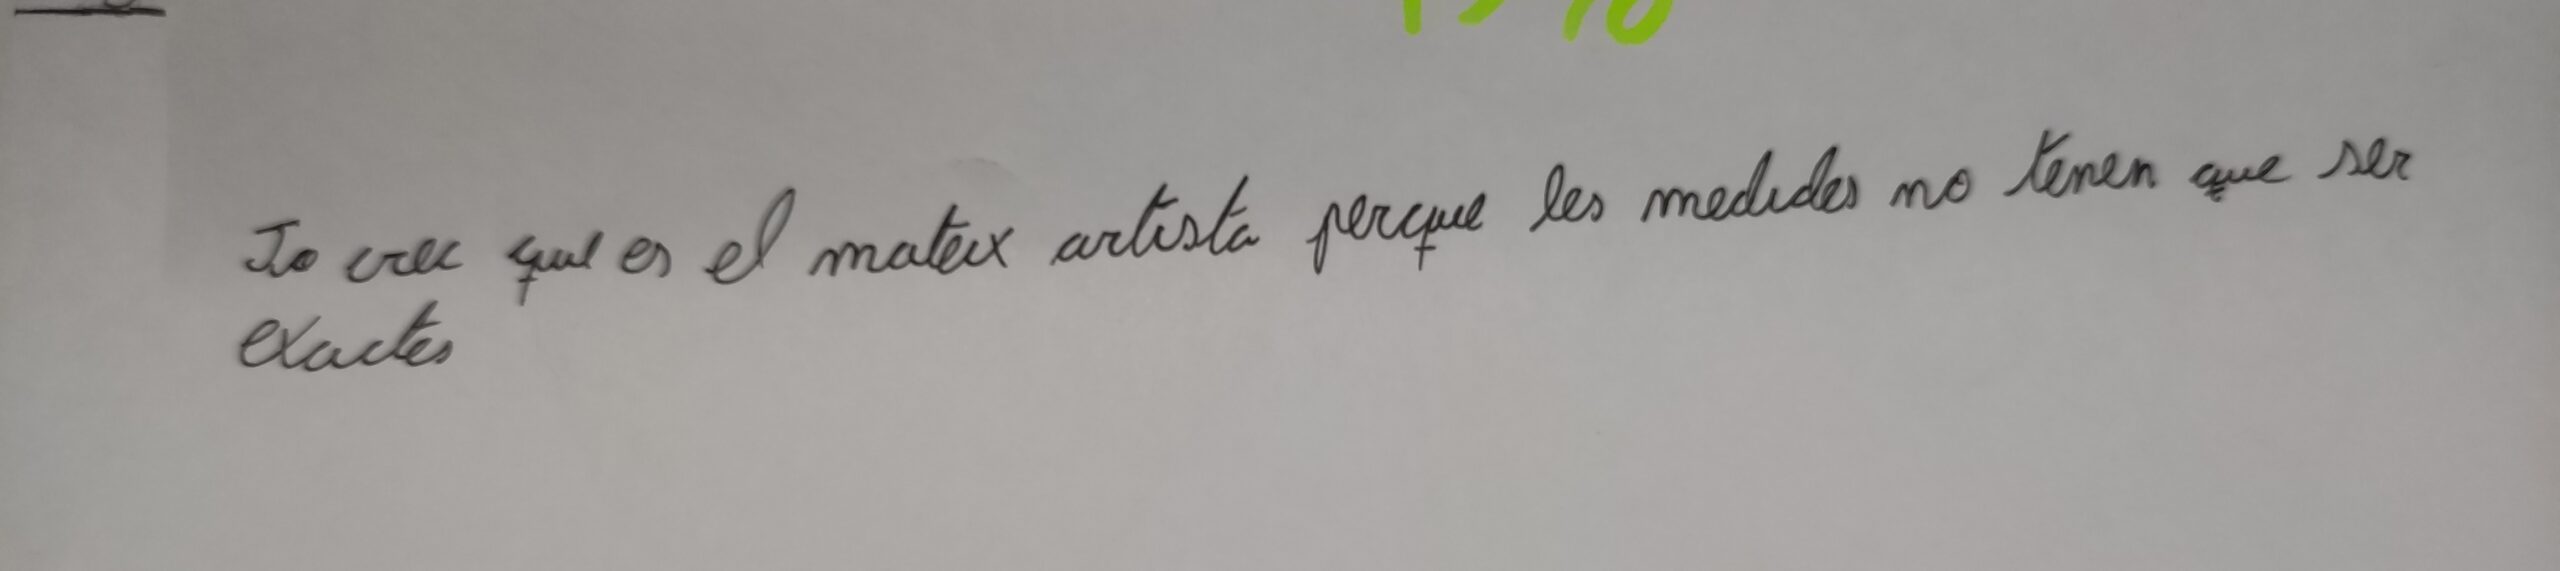 Jo crec que es el mateix artista perque les medides no tenen que ser
exactes